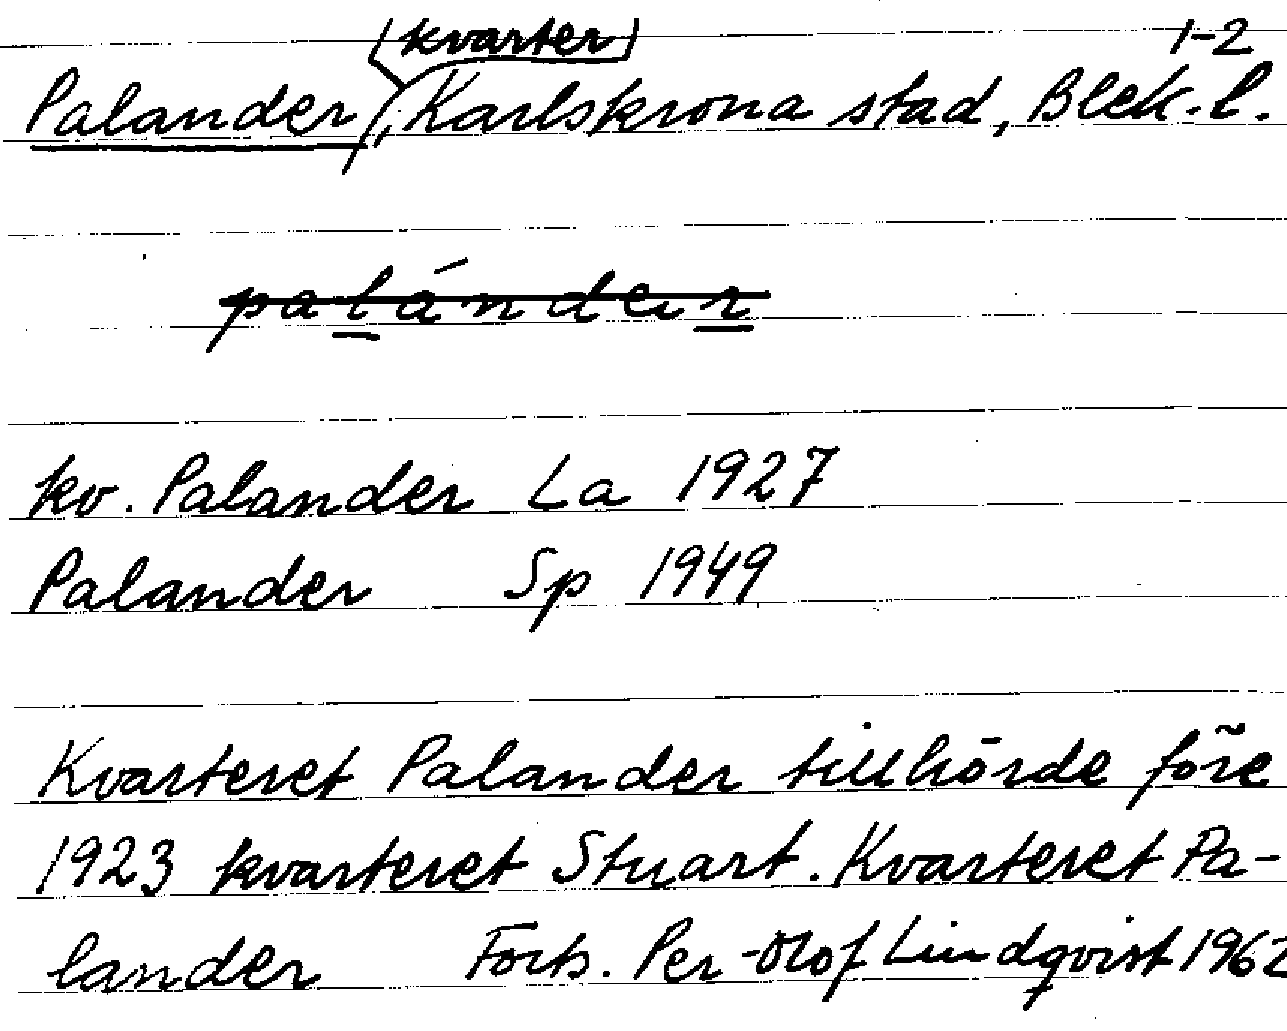 (kvarter) 1-2
Palander, Karlskrona stad, Blek. l.
palánder
kv. Palander La 1927
Palander Sp 1949
Kvarteret Palander tillhörde före
1923 kvarteret Stuart. Kvarteret Pa-
lander Forts. Per-Olof Lindqvist 1962